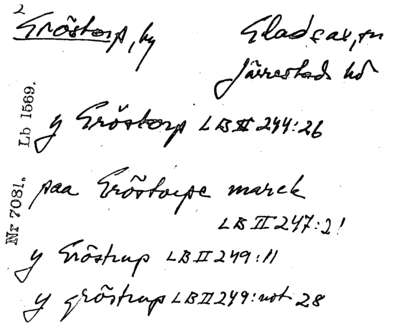 2
Gröstorp, by
Gladsax, sn
Järrestads hd
Nr 7081. Lb 1569.
y Gröstorp LB II 244:26
paa Gröstorpe marck
LB II 247:2!
y Gröstrup LB II 249:11
y gröstrup LB II 249: not 28